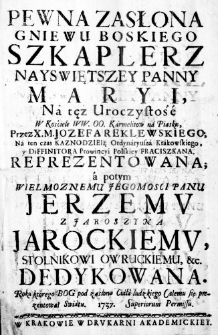 PEWNA ZASŁONA
GNIEWU BOSKIEGO
SZKAPLERZ
NAYSWIĘTSZEY PANNY
MARYI,
Na tęż Uroczystość
W Kościele WW. OO. Karmelitow na Piasku,
Przez X. M. JOZEFA REKLEWSKIEGO,
Na ten czas KAZNODZIEIĘ Ordynaryusza Krakowskiego,
y DEFFINITORA Prowincyi Polskiey FRACISZKANA,
REPREZENTOWANA;
a potym
WIELMOZNEMU JEGOMOSCI PANU
JERZEMV
Z JAROSZYNA
JAROCKIEMV,
STOLNIKOWI OWRUCKIEMU, &c.
DEDYKOWANA.
Roku którego BOG pod zasłoną Ciałá ludzkiego Cáłemu się pre-
zentował Swiátu, 1737. Superiorum Permissu.
W KRAKOWIE W DRVKARNI AKADEMICKIEY